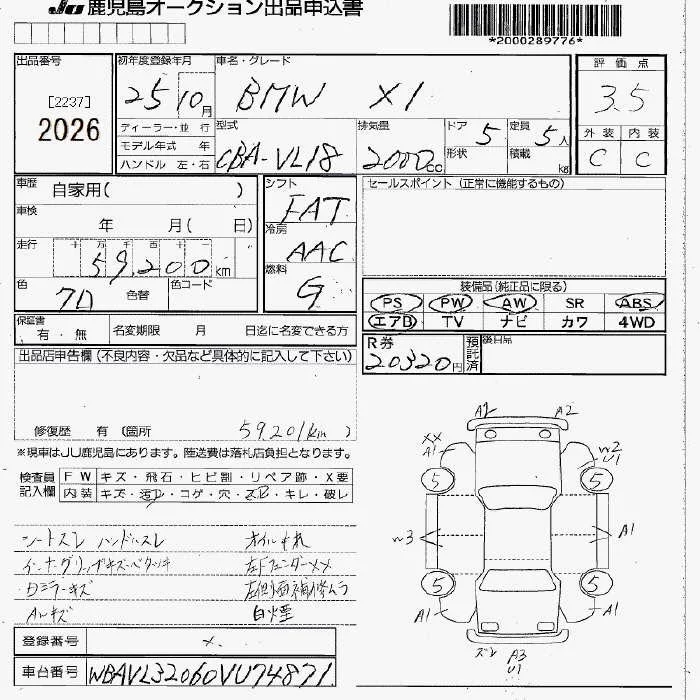 JU 鹿児島オークション出品申込書
*2000289776*
出品番号
[2237]
2026
初年度登録年月
25 10月
車名・グレード
BMW X1
評価点
3.5
外装 内装
C C
ディーラー・並 行
モデル年式 年
ハンドル 左・右
型式
CBA-VL18
排気量
2000cc
ドア 5
形状
定員 5人
積載 kg
車歴 自家用( )
車検 年 月( 日)
走行 十 万 千 百 十 一
59,200km
色 クロ 色替
色コード
シフト
FAT
冷房
AAC
燃料
G
セールスポイント (正常に機能するもの)
装備品(純正品に限る)
PS PW AW SR ABS
エアB TV ナビ カワ 4WD
保証書
有・無
名変期限 月 日迄に名変できる方
R券
20320円
預託済
後日品
出品店申告欄(不良内容・欠品など具体的に記入して下さい)
59,201km
修復歴 有(箇所 )
※現車はJU鹿児島にあります。陸送費は落札店負担となります。
検査員記入欄
FW キズ・飛石・ヒビ割・リペア跡・X要
内装 キズ・汚れ・コゲ・穴・スレ・キレ・破レ
シートスレ ハンドルスレ オイルモれ
インナーグリップキズベタツキ 左Fフェンダーxx
ロミラーキズ 左側面補修ムラ
ALキズ 白煙
A2 A2
XX
A1
W2
U1
5 5
W3 A1
5 5
A1 A1
スレ A3
U1
登録番号 ×
車台番号 WBAVL32060VU74871